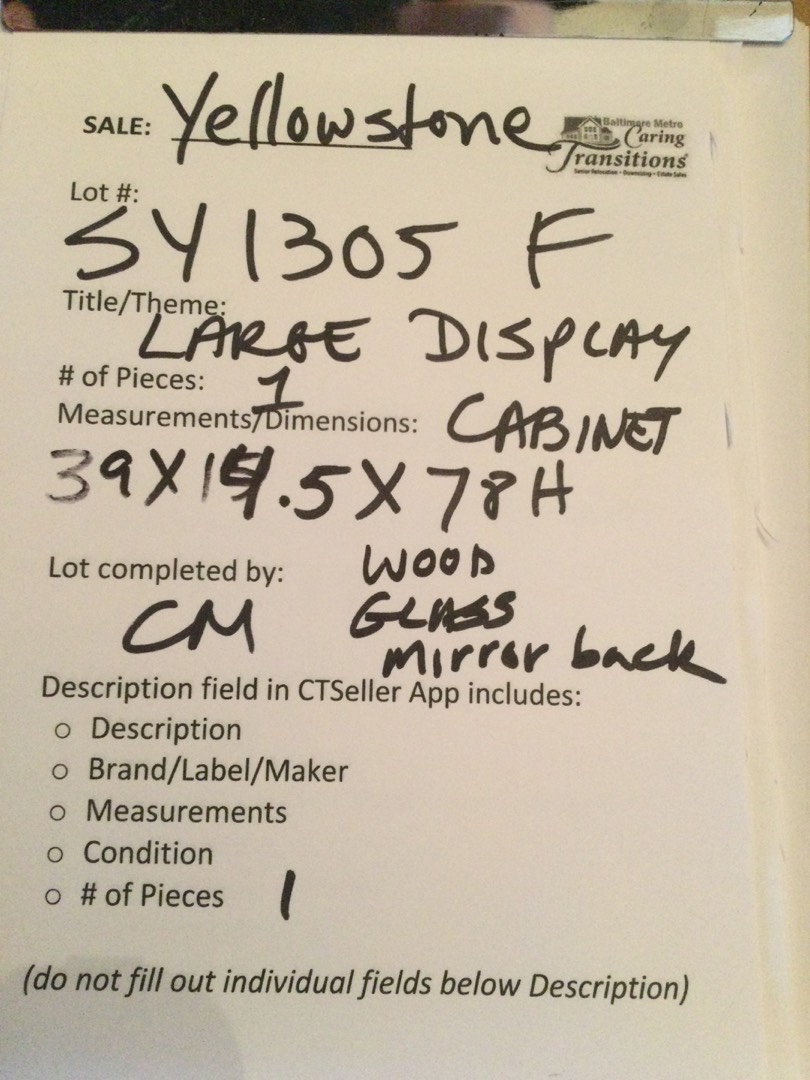 SALE: Yellowstone
Baltimore Metro
Caring
Transitions
Senior Relocation • Downsizing • Estate Sales
Lot #:
SY1305 F
Title/Theme:
LARGE DISPLAY
# of Pieces: 1
Measurements/Dimensions: CABINET
X 78H
Lot completed by: WOOD
CM GLASS
mirror back
Description field in CTSeller App includes:
o Description
o Brand/Label/Maker
o Measurements
o Condition
o # of Pieces 1
(do not fill out individual fields below Description)